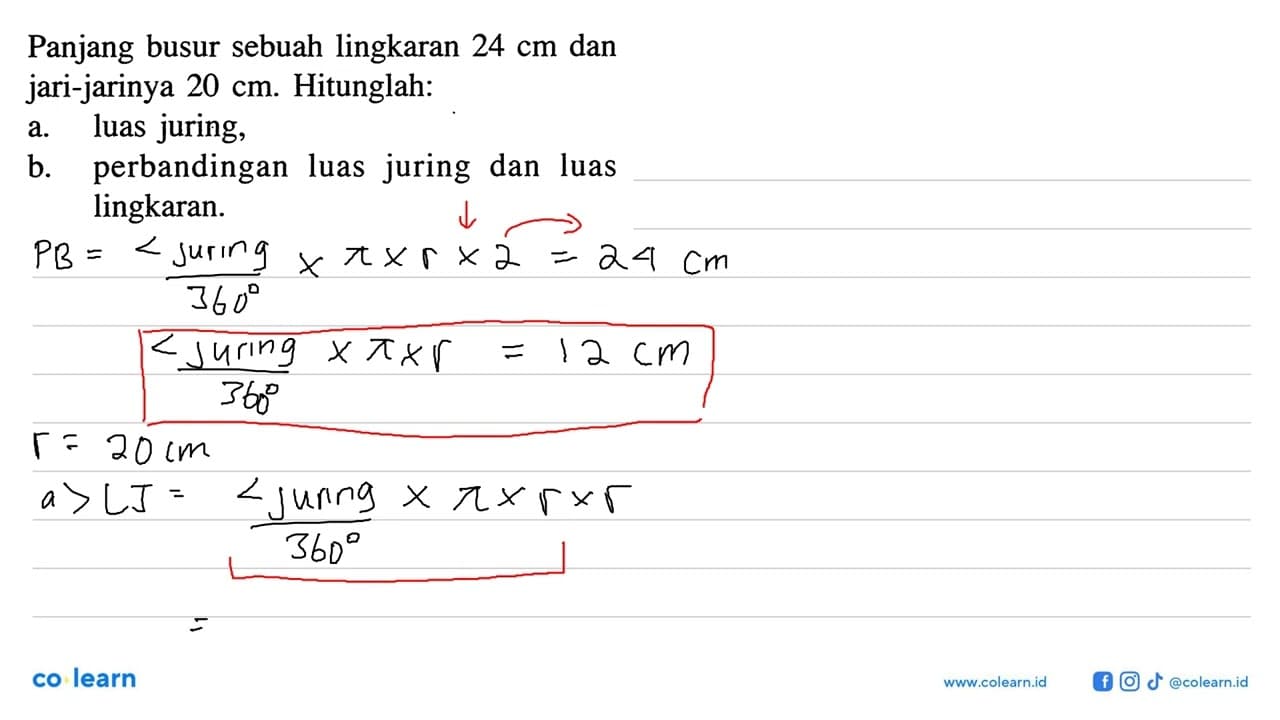 Panjang busur sebuah lingkaran 24 cm dan
jari-jarinya 20 cm. Hitunglah:
a. luas juring,
b. perbandingan luas juring dan luas
lingkaran.
PB = < juring / 360° × π × r × 2 = 24 cm
< juring / 360° × π × r = 12 cm
r = 20 cm
a> LJ = < juring / 360° × π × r × r
=
co learn
www.colearn.id
@colearn.id